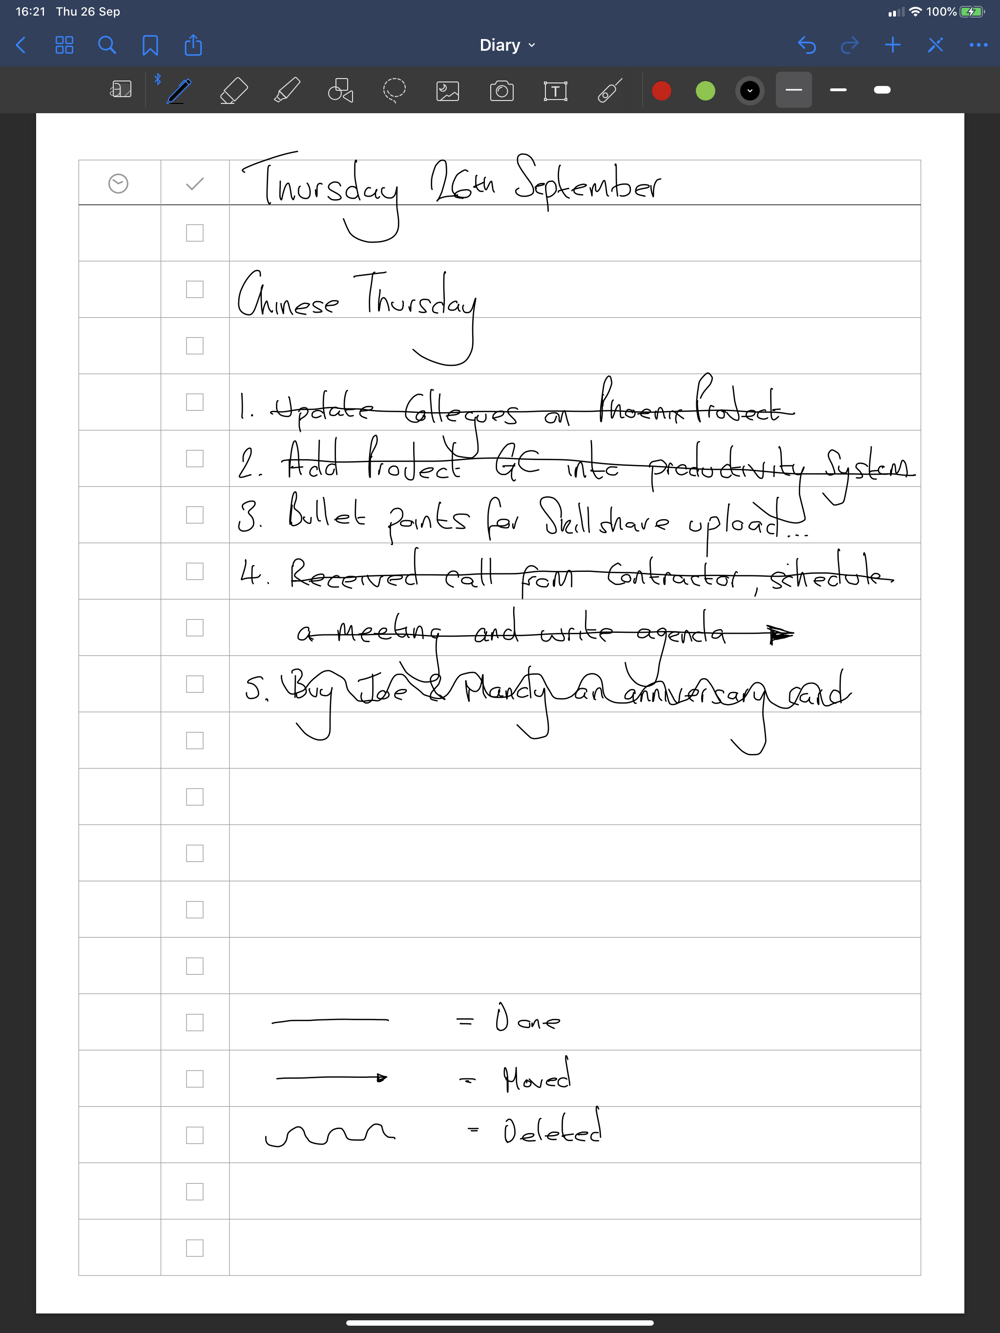 16:21 Thu 26 Sep 100%
Diary
T
Thursday 26th September
Chinese Thursday
1. Update Collegues on Phoenix Project
2. Add Project GC into productivity System
3. Bullet points for Skillshare upload...
4. Received call from Contractor, schedule
a meeting and write agenda
5. Buy Joe & Mandy an anniversary card
= Done
= Moved
= Deleted